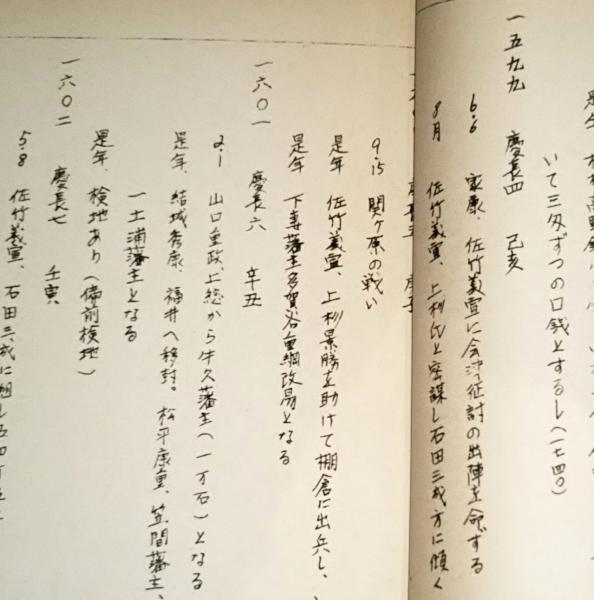 いて三匁ずつの口銭とする」(一七四〇)
一五九九 慶長四 己亥
6.6 家康、佐竹義宣に会津征討の出陣を命ずる
8月 佐竹義宣、上杉氏と密謀し石田三成方に傾く
庚子
9.15 関ヶ原の戦い
是年 佐竹義宣、上杉景勝を助けて棚倉に出兵し、
是年 下妻藩主多賀谷重綱改易となる
一六〇一 慶長六 辛丑
2.1 山口重政、上総から牛久藩主(一万石)となる
是年、結城秀康、福井へ移封。松平康重、笠間藩主、
土浦藩主となる
是年、検地あり(備前検地)
一六〇二 慶長七 壬寅
5.8 佐竹義宣、石田三成に組し五四万五